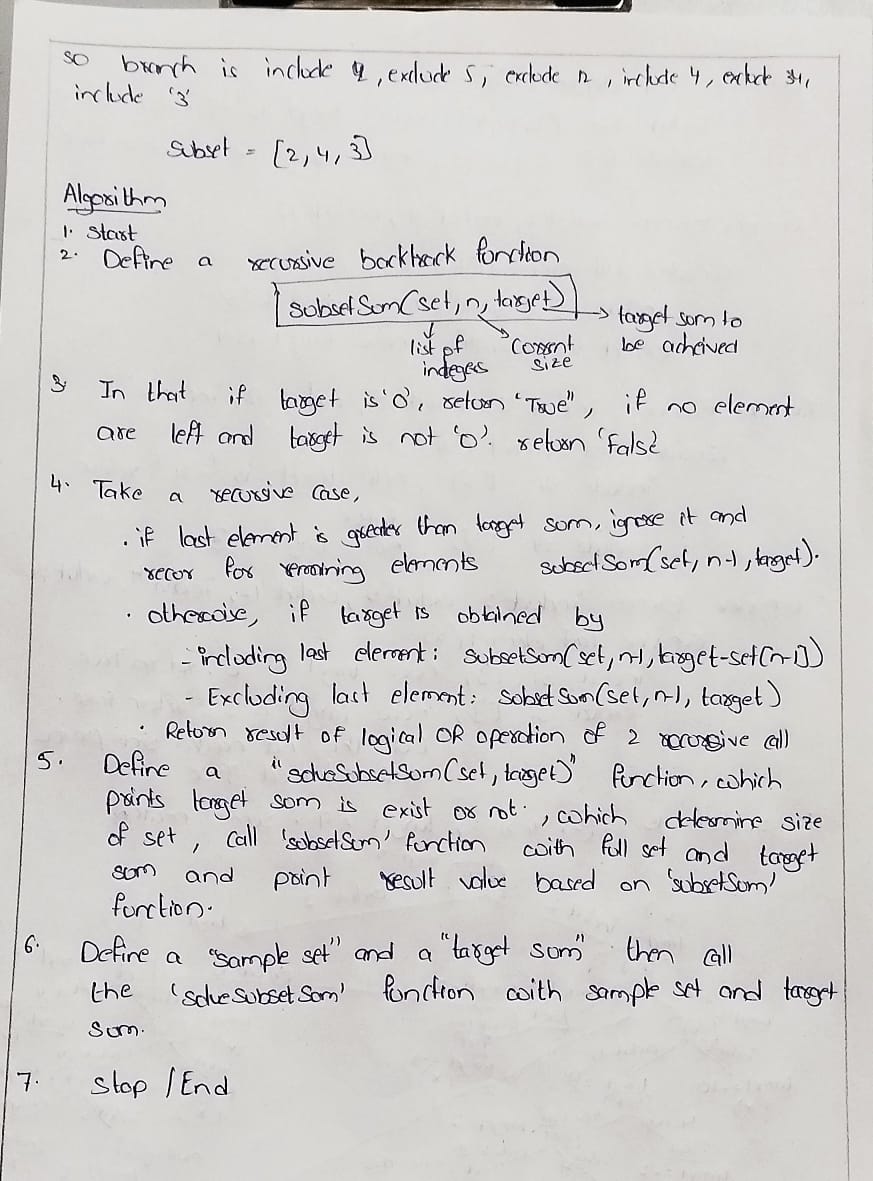 so branch is include 2, exclude 5, exclude 12, include 4, exclude 34,
include '3'
Subset = [2, 4, 3]
Algorithm
1. Start
2. Define a recursive backtrack function
subsetSum(set, n, target) → target sum to
list of current be acheived
indegers size
3. In that if target is '0', return "True", if no element
are left and target is not '0'. return 'False'
4. Take a recursive case,
. if last element is greater than target sum, ignore it and
recur for remaining elements subsetSum(set, n-1, target).
. otherwise, if target is obtained by
- including last element: subsetSum(set, n-1, target-set[n-1])
- Excluding last element: subsetSum(set, n-1, target)
. Return result of logical OR operation of 2 recursive call
5. Define a "solveSubsetSum(set, target)" function, which
prints target sum is exist or not., which determine size
of set, call 'subsetSum' function with full set and target
sum and print result value based on 'subsetSum'
function.
6. Define a "sample set" and a "target sum" then call
the 'solveSubsetSum' function with sample set and target
sum.
7. Stop / End